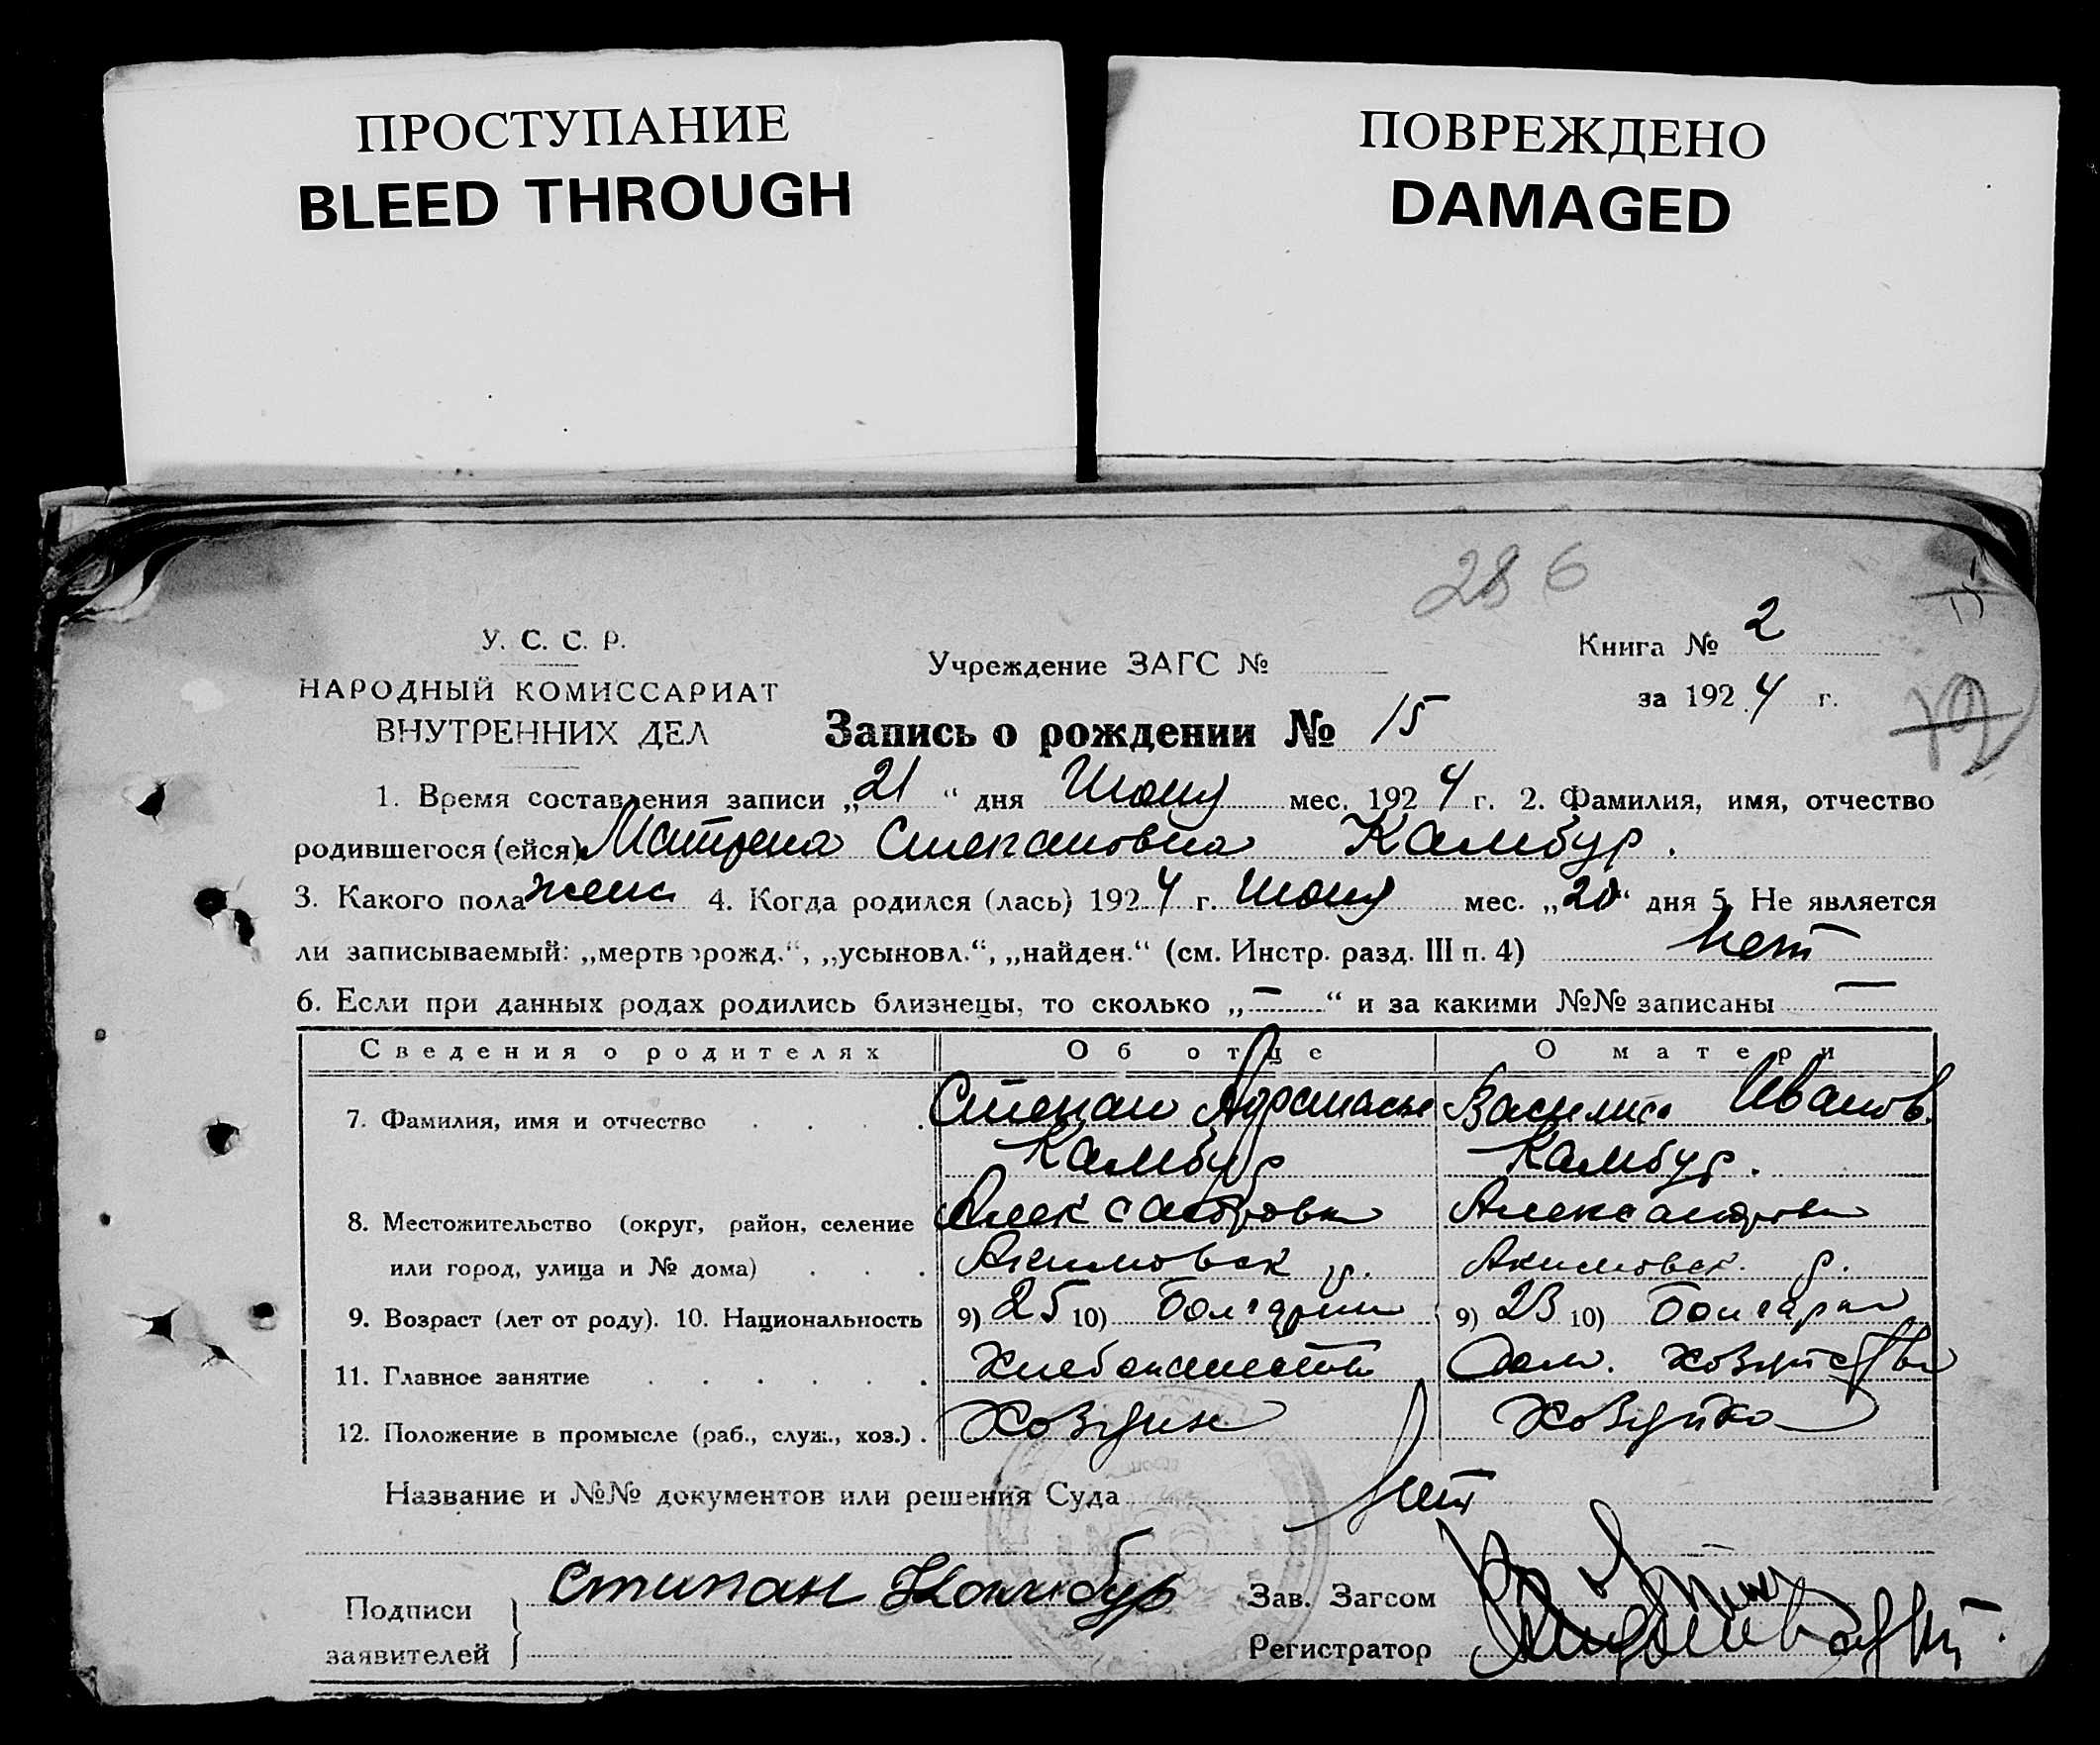 ПРОСТУПАНИЕ
BLEED THROUGH
ПОВРЕЖДЕНО
DAMAGED
286
У. С. С. Р.
НАРОДНЫЙ КОМИССАРИАТ
ВНУТРЕННИХ ДЕЛ
Учреждение ЗАГС №
Книга № 2
за 1924 г.
Запись о рождении № 15
1. Время составления записи „21“ дня Июня мес. 1924 г. 2. Фамилия, имя, отчество
родившегося (ейся) Матрена Степановна Камбур.
3. Какого пола женс 4. Когда родился (лась) 1924 г. Июня мес. „20“ дня 5. Не является
ли записываемый: „мертворожд.“, „усыновл.“, „найден.“ (см. Инстр. разд. III п. 4) Нет
6. Если при данных родах родились близнецы, то сколько „—“ и за какими №№ записаны —
Сведения о родителях Об отце О матери
7. Фамилия, имя и отчество Степан Афанасье Василиса Иванов.
Камбур Камбур.
8. Местожительство (округ, район, селение Александровка Александровка
или город, улица и № дома) Акимовск р. Акимовск. р.
9. Возраст (лет от роду). 10. Национальность 9) 25 10) Болгарин 9) 23 10) Болгарка
11. Главное занятие Хлебопашество Дом. хозяйство
12. Положение в промысле (раб., служ., хоз.) Хозяин Хозяйка
Название и №№ документов или решения Суда Нет
Подписи
заявителей
Стипан Камбур
Зав. Загсом
Регистратор